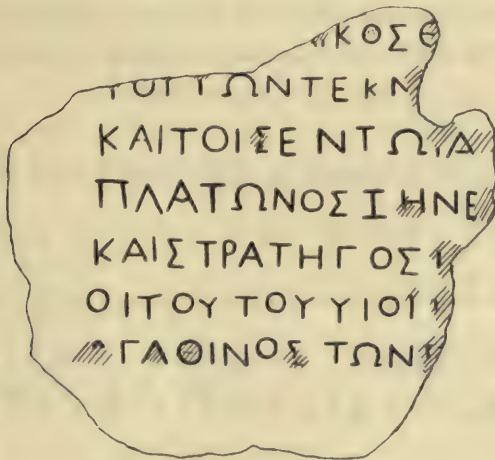 ΚΟΣΘ
ΤΟΙΤΩΝΤΕΚΝ
ΚΑΙΤΟΙΣΕΝΤΩΙΑ
ΠΛΑΤΩΝΟΣΖΗΝΕ
ΚΑΙΣΤΡΑΤΗΓΟΣ
ΟΙΤΟΥΤΟΥΥΙΟΙ
ΑΓΑΘΙΝΟΣΤΩΝ